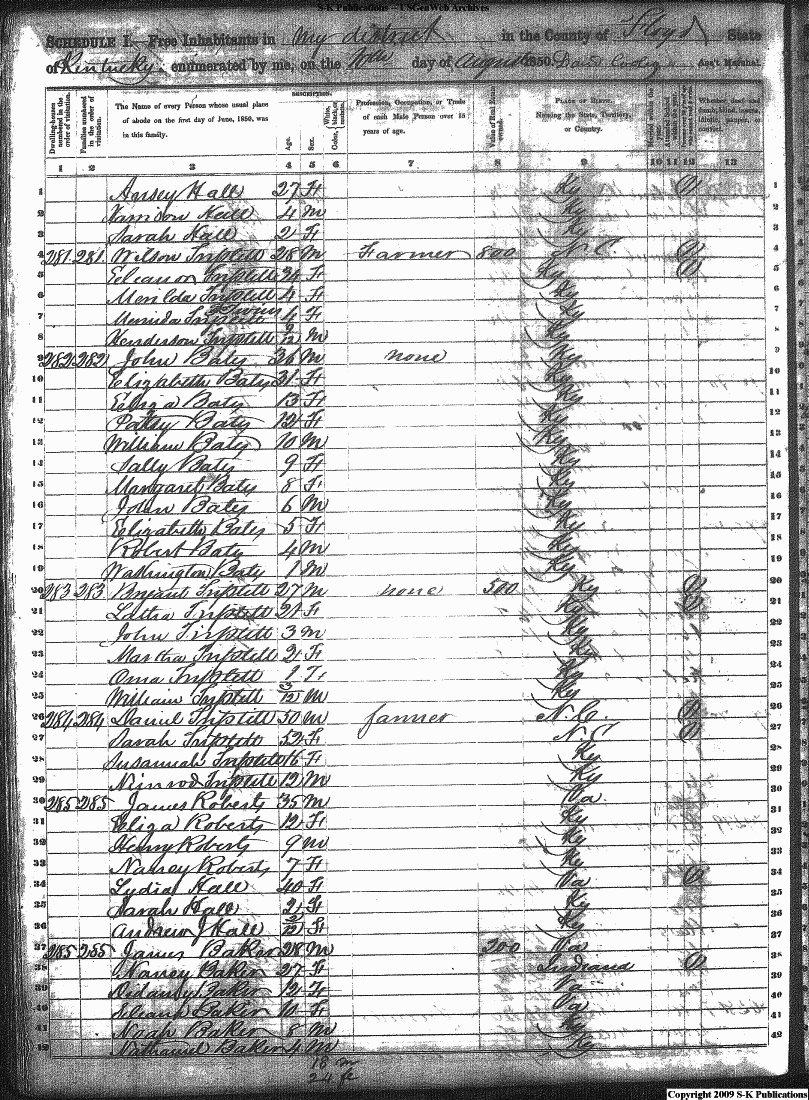 S-K Publications - USGenWeb Archives
SCHEDULE I. Free Inhabitants in My district in the County of Floyd State
of Kentucky enumerated by me, on the day of August 1850. Ass't Marshal.
DESCRIPTION.
Dwelling-houses numbered in the order of visitation.
Families numbered in the order of visitation.
The Name of every Person whose usual place of abode on the first day of June, 1850, was in this family.
Age.
Sex.
Color, White, black, or mulatto.
Profession, Occupation, or Trade of each Male Person over 15 years of age.
Value of Real Estate owned.
PLACE OF BIRTH. Naming the State, Territory, or Country.
Married within the year.
Attended School within the year.
Whether deaf and dumb, blind, insane, idiotic, pauper, or convict.
1 2 3 4 5 6 7 8 9 10 11 12 13
1 Ansey Hall 27 F Ky 1
2 Hall 4 M Ky 2
3 Sarah Hall 2 F Ky 3
4 281 281 Wilson Triplett 28 M Farmer 800 N.C. 4
5 Eleanor Triplett 34 F Ky 5
6 Triplett 4 F Ky 6
7 Triplett 4 F Ky 7
8 Henderson Triplett 9/12 M Ky 8
9 282 282 John Baty 36 M none Ky 9
10 Elizabeth Baty 31 F Ky 10
11 Eliza Baty 13 F Ky 11
12 Patsy Baty 12 F Ky 12
13 William Baty 10 M Ky 13
14 Sally Baty 9 F Ky 14
15 Margaret Baty 8 F Ky 15
16 John Baty 6 M Ky 16
17 Elizabeth Baty 5 F Ky 17
18 Robert Baty 4 M Ky 18
19 Washington Baty 1 M Ky 19
20 283 283 Bryant Triplett 27 M none 500 Ky 20
21 Triplett 21 F Ky 21
22 John Triplett 3 M Ky 22
23 Martha Triplett 2 F Ky 23
24 Oma Triplett 1 F Ky 24
25 William Triplett 3/12 M Ky 25
26 284 284 Daniel Triplett 50 M farmer N.C. 26
27 Sarah Triplett 52 F N.C. 27
28 Susannah Triplett 16 F Ky 28
29 Nimrod Triplett 12 M Ky 29
30 285 285 James Roberts 35 M Va. 30
31 Eliza Roberts 12 F Ky 31
32 Henry Roberts 9 M Ky 32
33 Nancy Roberts 7 F Ky 33
34 Lydia Hall 40 F Va 34
35 Sarah Hall 2 F Ky 35
36 Andrew J Hall 2/12 Ky 36
37 285 285 James Baker 28 M 200 Va 37
38 Nancy Baker 27 F Indiana 38
39 Baker 12 F Va 39
40 Baker 10 F Va 40
41 Noah Baker 8 M Ky 41
42 Nathaniel Baker 4 M Ky 42
18 m
24 f
Copyright 2009 S-K Publications